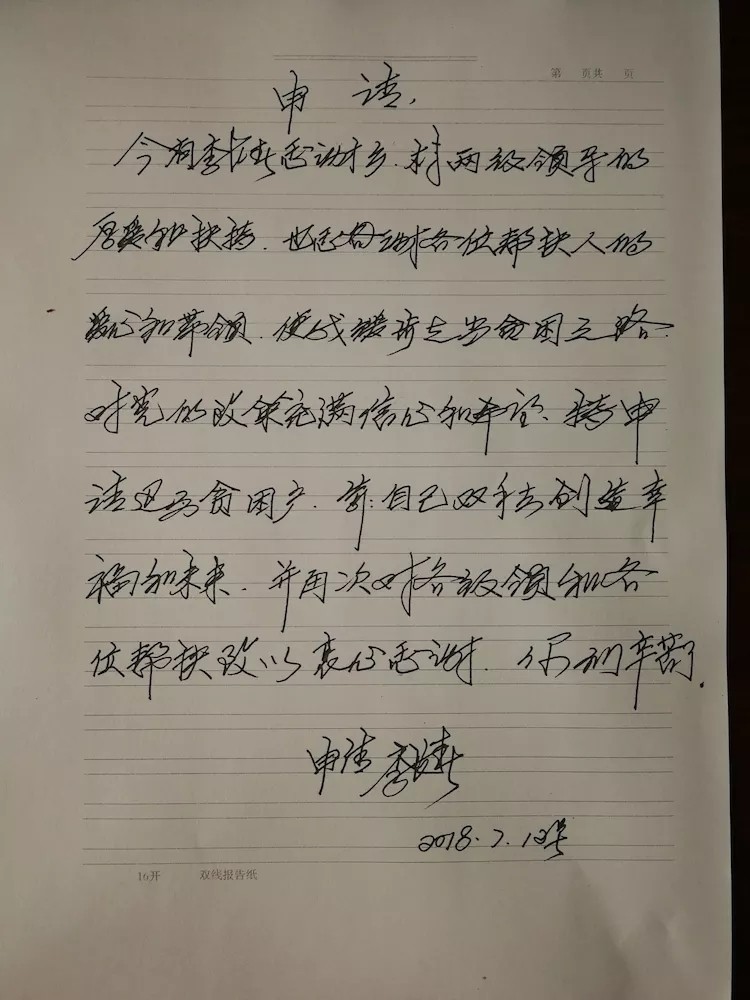 第 页共 页
申请
今有李长春感谢村乡.村两级领导的
厚爱和扶持.也感谢各位帮扶人的
爱心和带领.使我逐步走出贫困之路.
对党的政策充满信心和希望、特申
请退出贫困户.靠自己双手去创造幸
福和未来.并再次对各级领和各
位帮扶致以衷心感谢.你们辛苦了.
申请 李长春
2018.7.12号
16开 双线报告纸